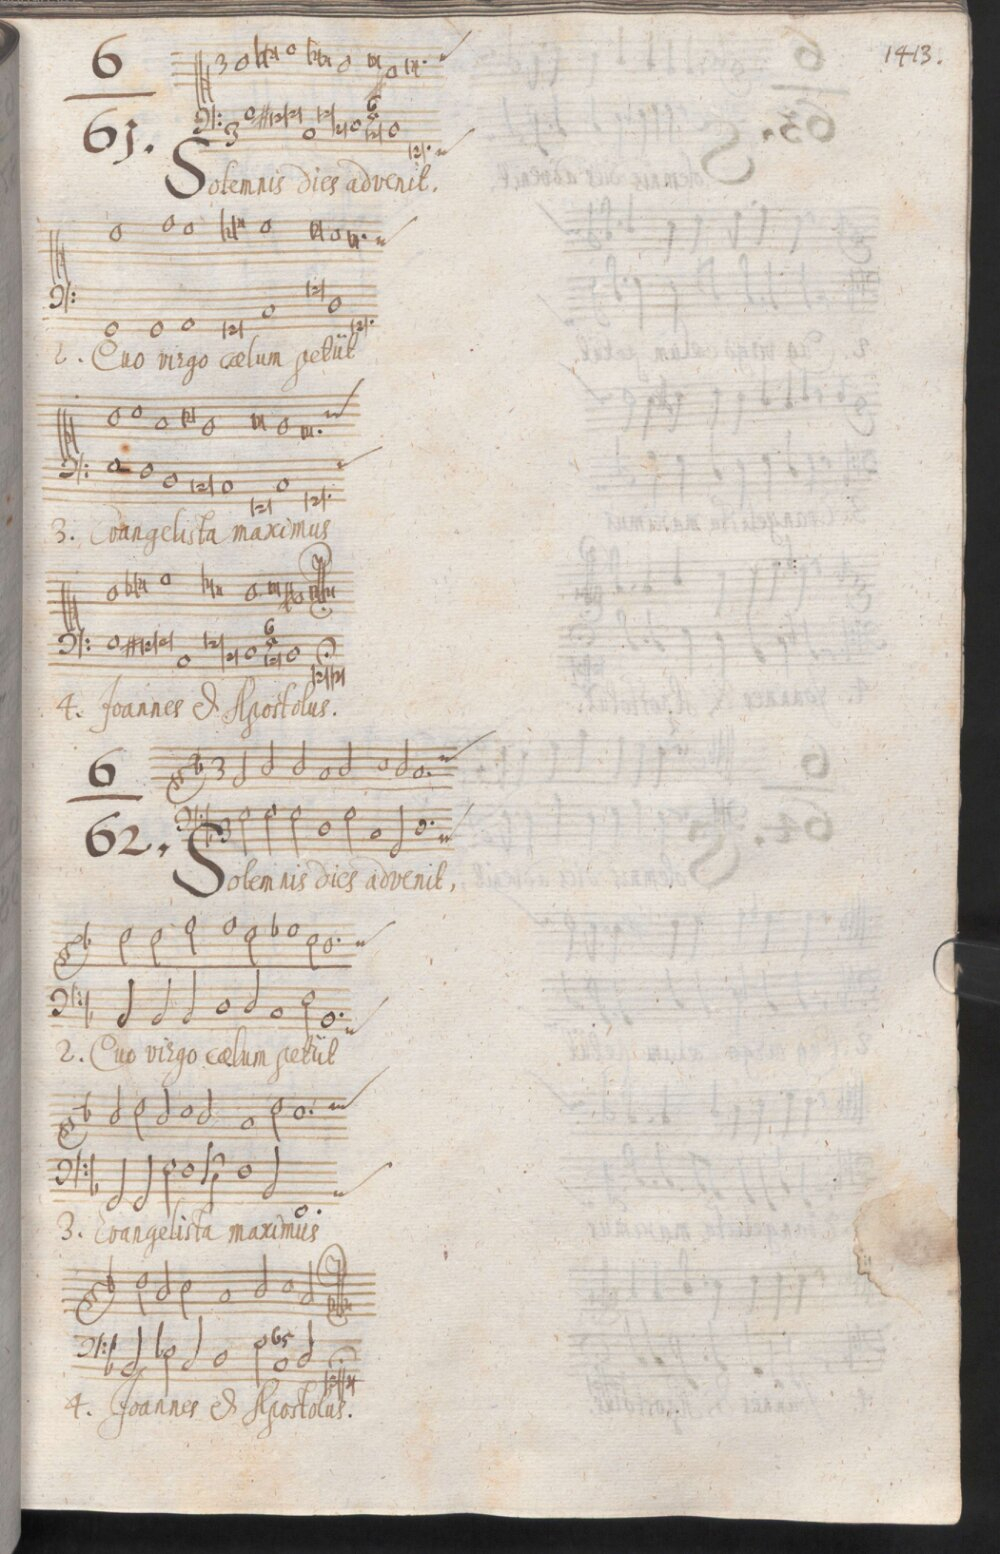 1413.
6
61.
Solemnis dies advenit,
2. Quo virgo cælum petiit
3. Evangelista maximus
4. Joannes & Apostolus.
6
62.
Solemnis dies advenit,
2. Quo virgo cælum petiit
3. Evangelista maximus
4. Joannes & Apostolus.